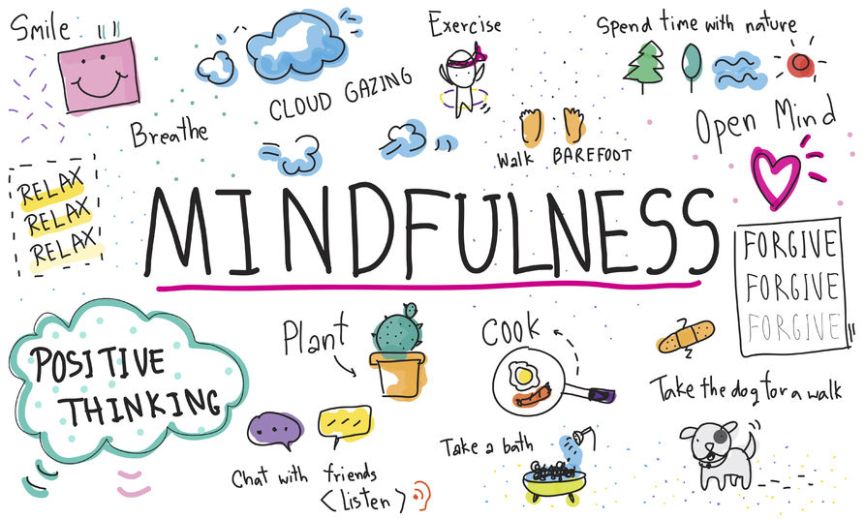 Smile
Exercise
Spend time with nature
CLOUD GAZING
Breathe
Walk BAREFOOT
Open Mind
RELAX
RELAX
RELAX
MINDFULNESS
FORGIVE
FORGIVE
FORGIVE
Plant
Cook
POSITIVE
THINKING
Take the dog for a walk
Take a bath
Chat with friends
<Listen>